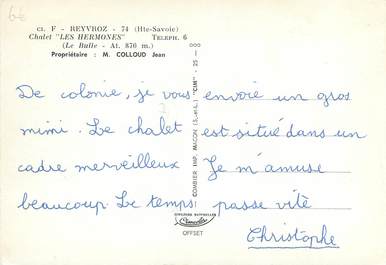 6€
CL. F - REYVROZ - 74 (Hte-Savoie)
Chalet "LES HERMONES" TELEPH. 6
(Le Bulle - Alt. 876 m.)
Propriétaire : M. COLLOUD Jean
COMBIER IMP. MACON (S.-et-L.) "CIM" - 25 - 000
De colonie, je vous envoie un gros
mimi. Le chalet est situé dans un
cadre merveilleux Je m'amuse
beaucoup. Le temps passe vite
Christophe
OFFSET